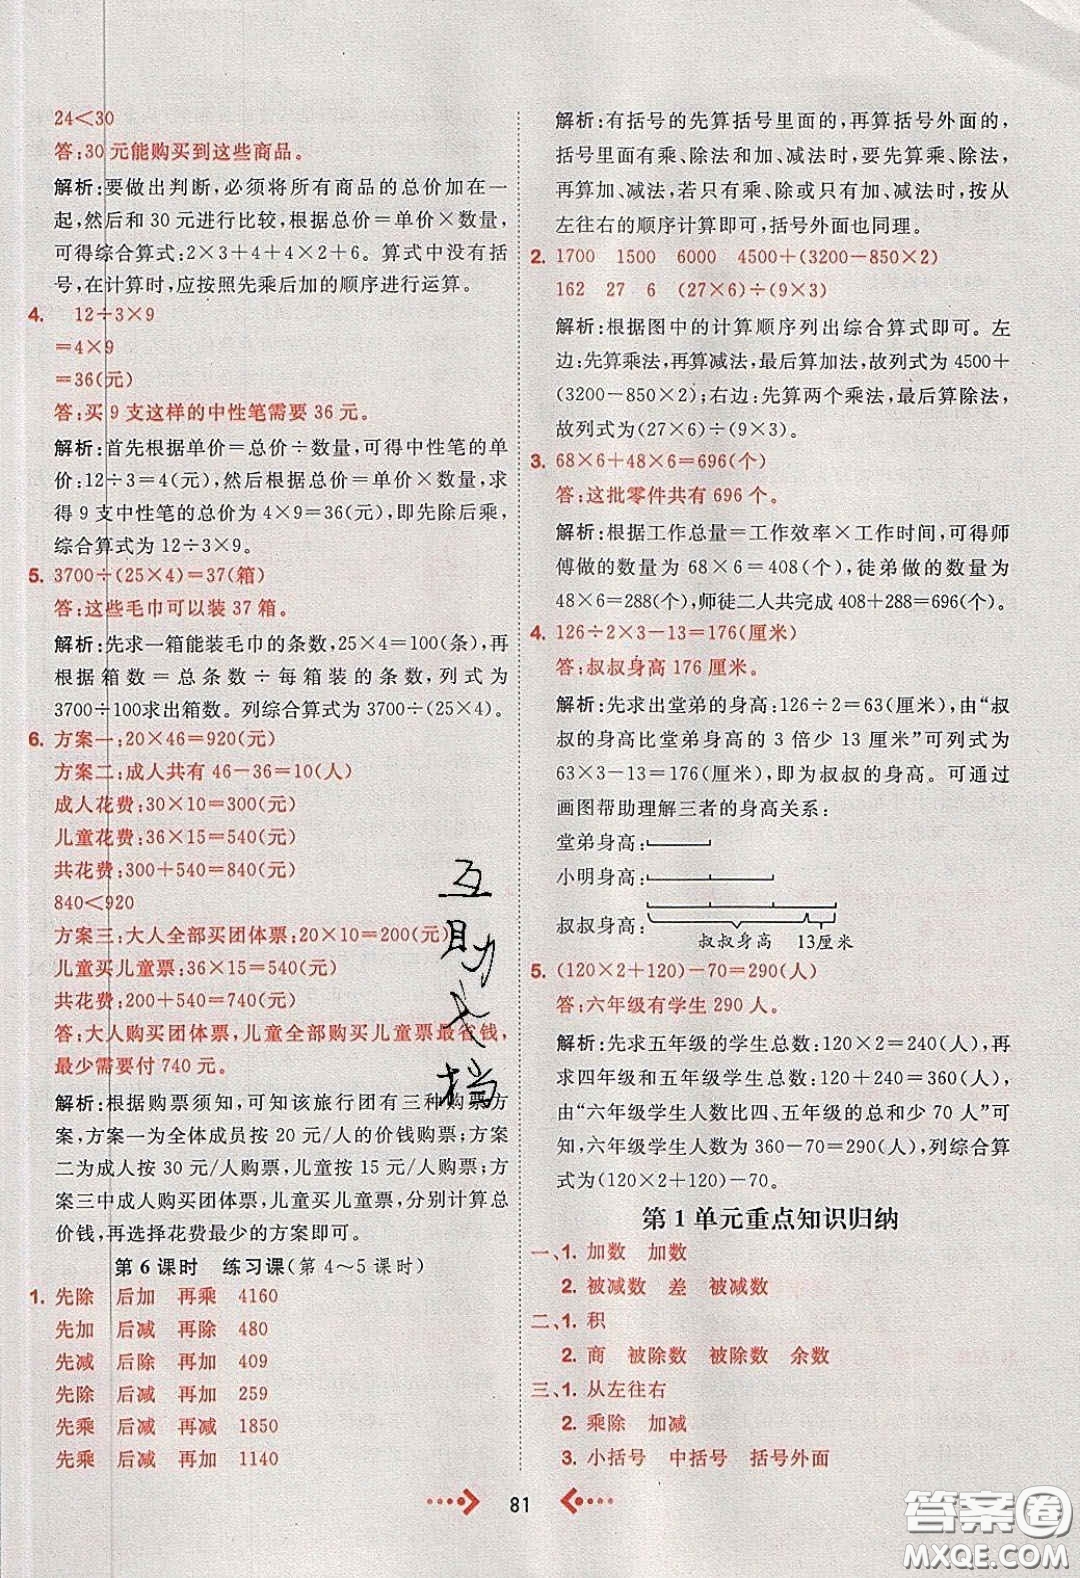 24＜30
答:30元能购买到这些商品。
解析:要做出判断,必须将所有商品的总价加在一
起,然后和30元进行比较,根据总价＝单价×数量,
可得综合算式:2×3＋4＋4×2＋6。算式中没有括
号,在计算时,应按照先乘后加的顺序进行运算。
4. 12÷3×9
＝4×9
＝36(元)
答:买9支这样的中性笔需要36元。
解析:首先根据单价＝总价÷数量,可得中性笔的单
价:12÷3＝4(元),再根据总价＝单价×数量,求
得9支中性笔的总价为4×9＝36(元),即先除后乘,
综合算式为12÷3×9。
5. 3700÷(25×4)＝37(箱)
答:这些毛巾可以装37箱。
解析:先求一箱能装毛巾的条数,25×4＝100(条),再
根据箱数＝总条数÷每箱装的条数,列式为
3700÷100求出箱数。列综合算式为3700÷(25×4)。
6. 方案一:20×46＝920(元)
方案二:成人共有46－36＝10(人)
成人花费:30×10＝300(元)
儿童花费:36×15＝540(元)
共花费:300＋540＝840(元)
840＜920
方案三:大人全部买团体票:20×10＝200(元)
儿童买儿童票:36×15＝540(元)
共花费:200＋540＝740(元)
答:大人购买团体票,儿童全部购买儿童票最省钱,
最少需要付740元。
解析:根据购票须知,可知该旅行团有三种购票方
案,方案一为全体成员按20元/人的价钱购票;方案
二为成人按30元/人购票,儿童按15元/人购票;方
案三中成人购买团体票,儿童买儿童票,分别计算总
价钱,再选择花费最少的方案即可。
第6课时 练习课(第4～5课时)
1. 先除 后加 再乘 4160
先加 后减 再除 480
先减 后除 再加 409
先除 后减 再加 259
先乘 后减 再加 1850
先乘 后加 再减 1140
解析:有括号的先算括号里面的,再算括号外面的,
括号里面有乘、除法和加、减法时,要先算乘、除法,
再算加、减法,若只有乘、除或只有加、减法时,按从
左往右的顺序计算即可,括号外面也同理。
2. 1700 1500 6000 4500＋(3200－850×2)
162 27 6 (27×6)÷(9×3)
解析:根据图中的计算顺序列出综合算式即可。左
边:先算乘法,再算减法,最后算加法,故列式为4500＋
(3200－850×2);右边:先算两个乘法,最后算除法,
故列式为(27×6)÷(9×3)。
3. 68×6＋48×6＝696(个)
答:这批零件共有696个。
解析:根据工作总量＝工作效率×工作时间,可得师
傅做的数量为68×6＝408(个),徒弟做的数量为
48×6＝288(个),师徒二人共完成408＋288＝696(个)。
4. 126÷2×3－13＝176(厘米)
答:叔叔身高176厘米。
解析:先求出堂弟的身高:126÷2＝63(厘米),由“叔
叔的身高比堂弟身高的3倍少13厘米”可列式为
63×3－13＝176(厘米),即为叔叔的身高。可通过
画图帮助理解三者的身高关系:
堂弟身高:
小明身高:
叔叔身高:
叔叔身高 13厘米
5. (120×2＋120)－70＝290(人)
答:六年级有学生290人。
解析:先求五年级的学生总数:120×2＝240(人),再
求四年级和五年级学生总数:120＋240＝360(人),
由“六年级学生人数比四、五年级的总和少70人”可
知,六年级学生人数为360－70＝290(人),列综合算
式为(120×2＋120)－70。
第1单元重点知识归纳
一、1. 加数 加数
2. 被减数 差 被减数
二、1. 积
2. 商 被除数 被除数 余数
三、1. 从左往右
2. 乘除 加减
3. 小括号 中括号 括号外面
81
互助文档
答案圈
MXQE.COM